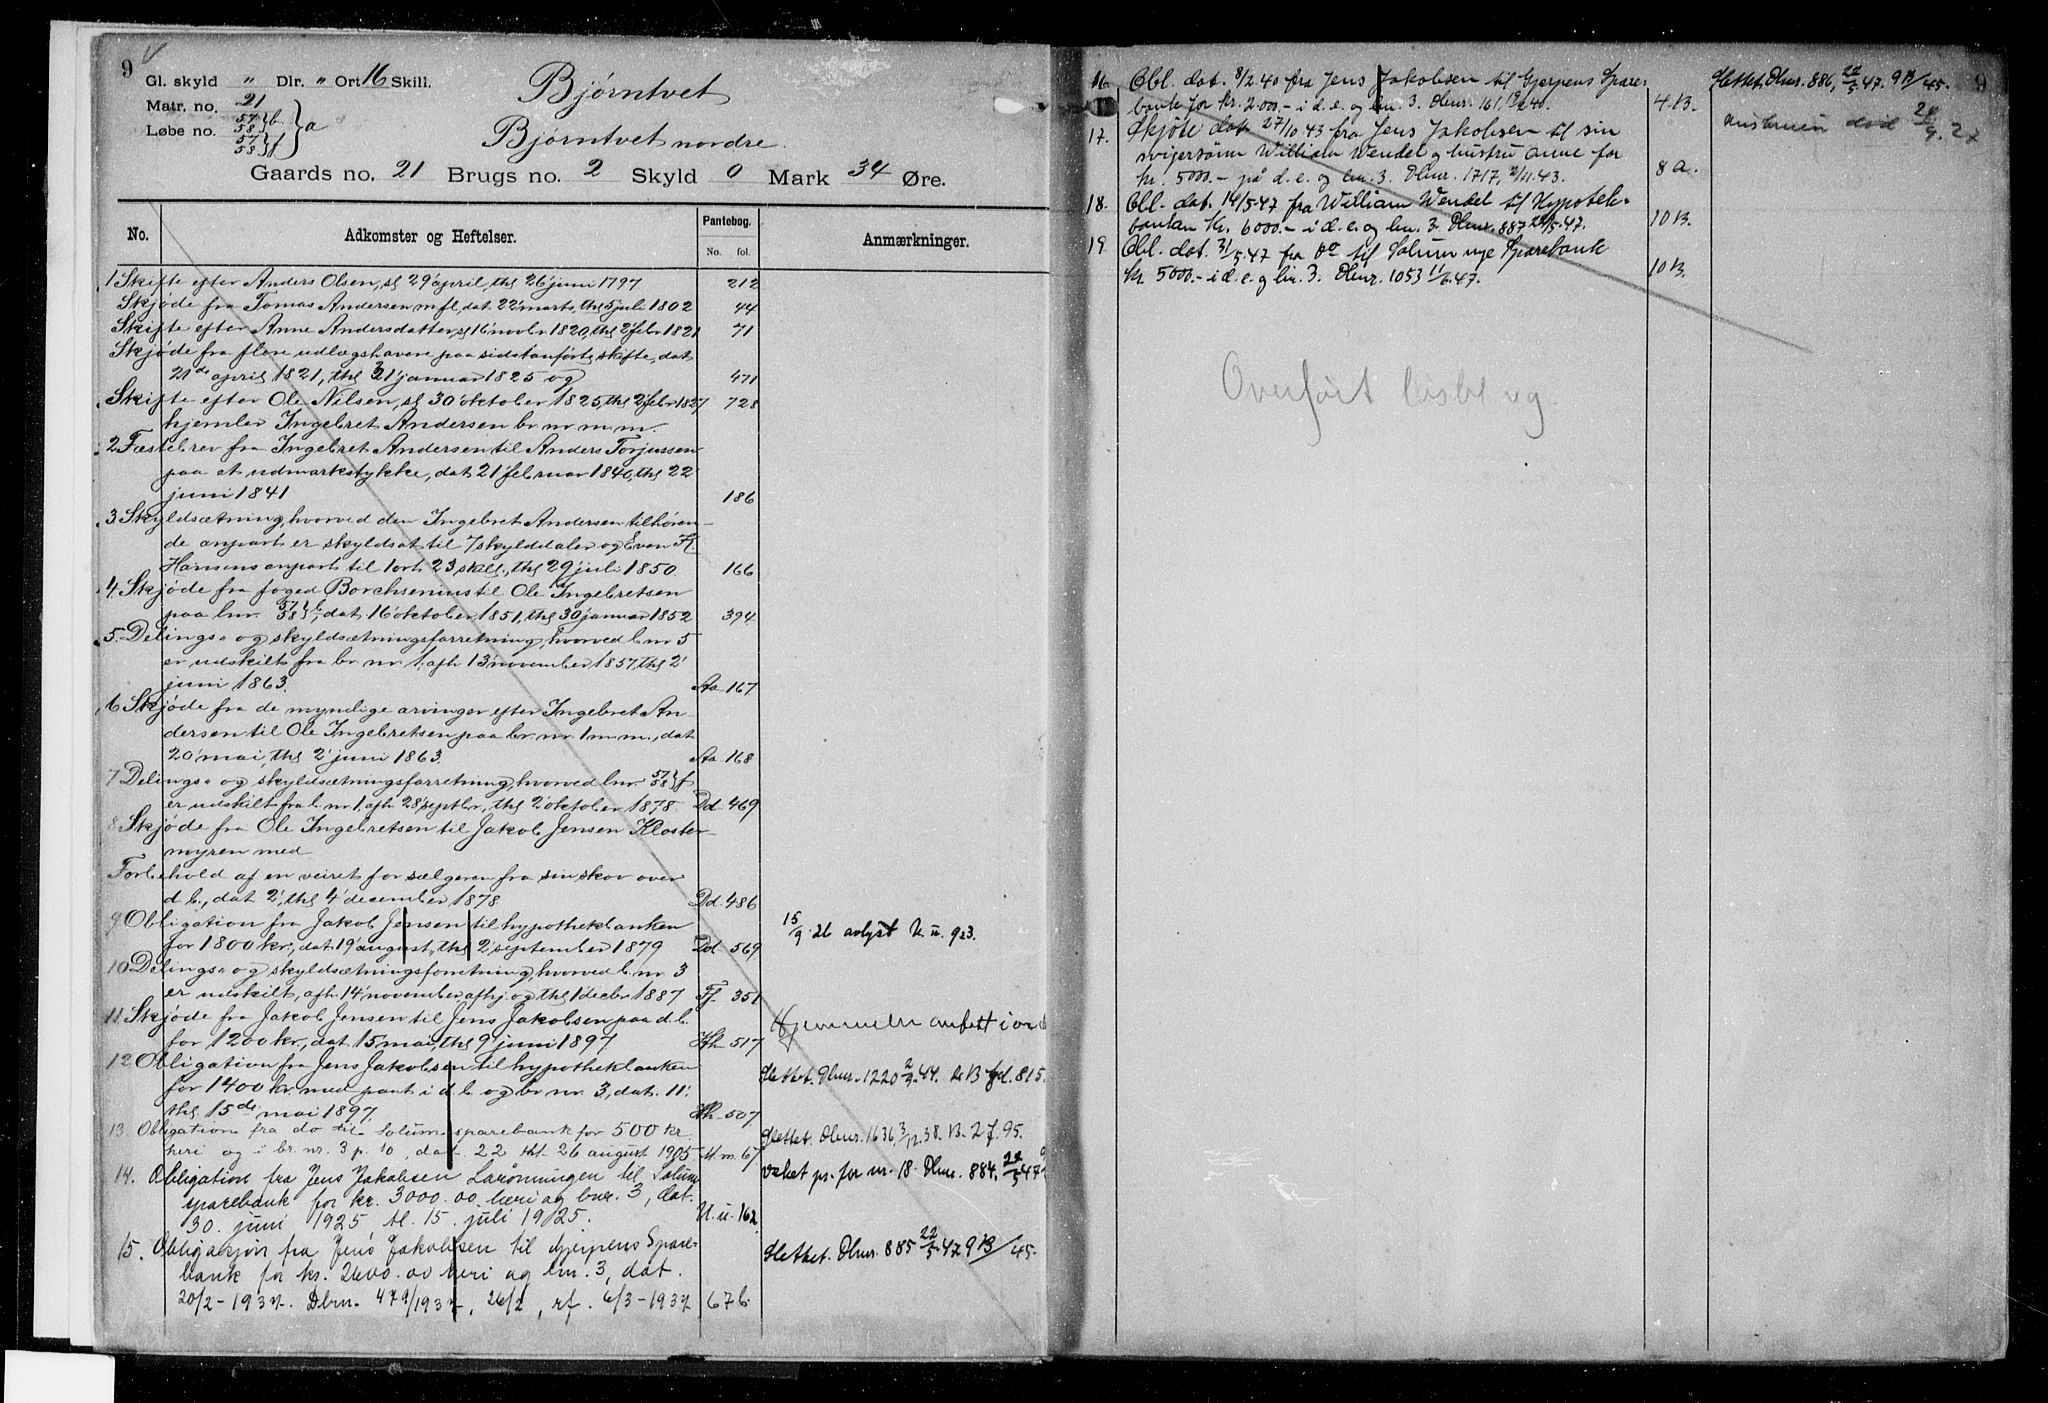 9
Gl. skyld " Dlr. " Ort 16 Skill.
Bjørntvet
Matr. no. 21
57 } b
Løbe no. 58 } a
57 } f
58
Bjørntvet nordre.
Gaards no. 21 Brugs no. 2 Skyld 0 Mark 34 Øre.
No. Adkomster og Heftelser. Pantebog. No. fol. Anmærkninger.
1 Skifte efter Anders Olsen, sl 29' april, thl 26' juni 1797 212
Skjøde fra Tomas Andersen m fl, dat 22' marts, thl 5 juli 1802 44
Skifte efter Anne Andersdatter, sl 16' novbr 1820, thl 2' febr 1821 71
Skjøde fra flere udlægshavere paa sidstanførte skifte, dat
21de april 1821, thl 31' januar 1825 og 471
Skifte efter Ole Nilsen, sl 30' oktober 1825, thl 2' febr 1827 728
hjemler Ingebret Andersen br nr m m.
2 Fæstebrev fra Ingebret Andersen til Anders Torjussen
paa et udmarkstykke, dat 21' februar 1840, thl 22
juni 1841 186
3 Skyldsætning, hvorved den Ingebret Andersen tilhøren-
de anpart er skyldsat til 7 skylddaler og Even H.
Hansens anpart til 1 ort 23 skill., thl 29' juli 1850 166
4. Skjøde fra foged Borchsenius til Ole Ingebretsen
paa lnr 57 58 } b, dat 16' oktober 1851, thl 30' januar 1852 394
5. Delings- og skyldsætningsforretning, hvorved b nr 5
er udskilt fra br nr 1, afh 13' november 1857, thl 2'
juni 1863. Aa 167
6 Skjøde fra de myndige arvinger efter Ingebret An-
dersen til Ole Ingebretsen paa br nr 1 m m., dat
20' mai, thl 2' juni 1863. Aa 168
7 Delings- og skyldsætningsforretning, hvorved lnr 57 58 } f
er udskilt fra b nr 1, afh 28' septbr, thl 2' oktober 1878 Dd 469
8 Skjøde fra Ole Ingebretsen til Jakob Jensen Kloster-
myren med
Forbehold af en veiret for sælgeren fra sin skov over
d b., dat 2', thl 4' december 1878 Dd 486
9 Obligation fra Jakob Jensen til hypothekbanken
for 1800 kr., dat 19' august, thl 2' september 1879 Dd 569 15/9 26 avlyst U. u. 923.
10 Delings- og skyldsætningsforretning, hvorved b. nr 3
er udskilt, afh 14' november, afhj. og thl 1' decbr 1887 Ff. 351
11. Skjøde fra Jakob Jensen til Jens Jakobsen paa d. b.
for 1200 kr., dat 15 mai, thl 9' juni 1897 Hh 517 Hjemmelen anført i orden
12 Obligation fra Jens Jakobsen til hypothekbanken
for 1400 kr. med pant i d. b. og br nr 3, dat. 11',
thl. 15de mai 1897. Hh 507 Slettet. Dbnr. 1220 2/9.44. B fd. 815.
13. Obligation fra do til Solum sparebank for 500 kr.
heri og i br. nr. 3 p. 10, dat 22 thl. 26 august 1905 M. m. 67 Slettet. Dbnr. 1636, 3/12.38. B. 27.95.
14. Obligation fra Jens Jakobsen Lærønningen til Solum
sparebank for kr. 3000.00 heri og bnr. 3, dat.
30. juni 1925 tl. 15. juli 1925. U. u. 162 veket pr. for nr. 18. Dbnr. 884. 22/5 47
15. Obligasjon fra Jens Jakobsen til Gjerpens Spare-
bank for kr. 2600.00 heri og bnr. 3, dat.
20/2-1937. Dbnr. 479/1937, 26/2, rf. 6/3-1937 67 b. Slettet. Dbnr. 885 22/5.47 9B/45.
9
16. Obl. dat. 8/2.40 fra Jens Jakobsen til Gjerpens Spare-
bank for kr. 2000.- i d. e. og bnr. 3. Dbnr. 161, 13/2.40. 4. B. Slettet. Dbnr. 886, 22/5.47. 9B/45.
17. Skjøte dat. 27/10.43 fra Jens Jakobsen til sin
svigersønn William Wendel og hustru Anne for
kr. 5000.- på d. e. og bnr. 3. Dbnr. 1717, 2/11.43. 8 A.
18. Obl. dat. 14/5.47 fra William Wendel til Hypotek-
banken kr. 6000.- i d. e. og bnr. 3. Dbnr. 887 22/5.47. 10 B.
19 Obl. dat. 31/5.47 fra do til Solum nye Sparebank
kr. 5000.- i d. e. og bnr. 3. Dbnr. 1053 11/6.47. 10 B.
Overført løsbl og